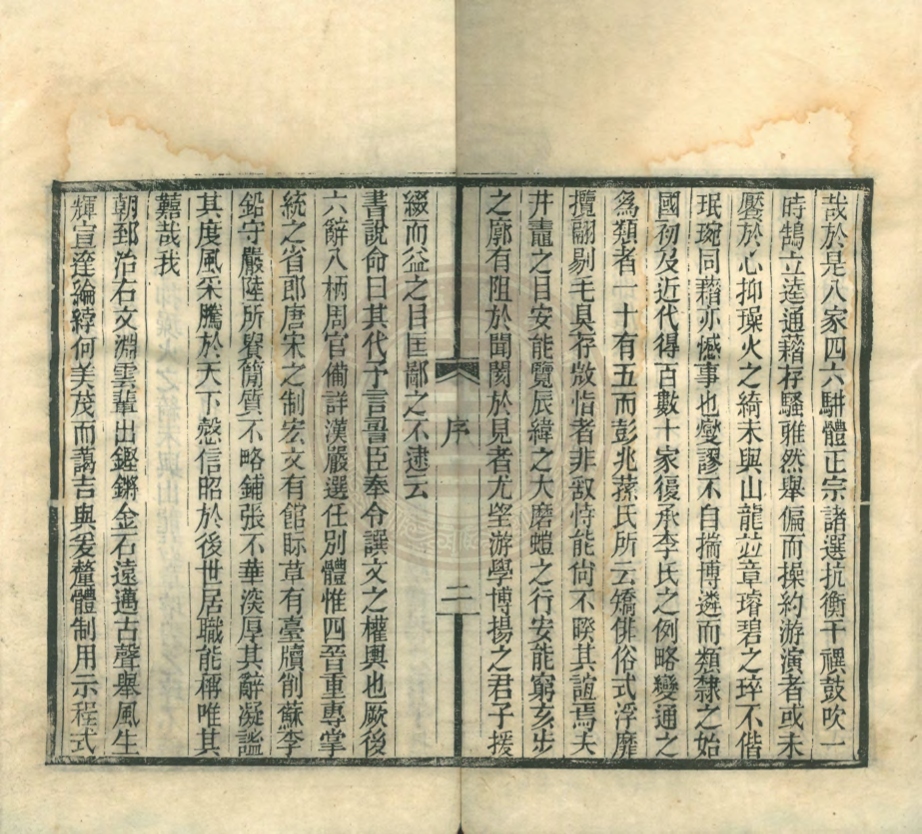 哉於是八家四六駢體正宗諸選抗衡千禩鼓吹一
時鵠立逵通藉存騷雅然舉偏而操約游演者或未
壓於心抑璪火之綺未與山龍竝章璿碧之琗不偕
珉琬同藉亦憾事也燮謬不自揣博遴而類隸之始
國初及近代得百數十家復承李氏之例略變通之
爲類者一十有五而彭兆蓀氏所云矯俳俗式浮靡
攬翮剔毛具存敚恉者非敢恃能尙不睽其誼焉夫
井鼃之目安能覽辰緯之大磨螘之行安能窮亥步
之廓有阻於聞閡於見者尤朢游學博揚之君子援
綴而益之目匡鄙之不逮云
書說命曰其代予言詈臣奉令譔文之權輿也厥後
六辭八柄周官僃詳漢嚴選任別體惟四晉重專掌
統之省郞唐宋之制宏文有館眎草有臺牘削蘇李
鉛守嚴陸所賚簡質不略鋪張不華渙厚其辭凝謐
其度風采騰於天下愨信昭於後世居職能稱唯其
囏哉我
朝郅治右文淵雲輩出鏗鏘金石遠邁古聲舉風生
輝宣達綸綍何美茂而藹吉與爰釐體制用示程式
序
二